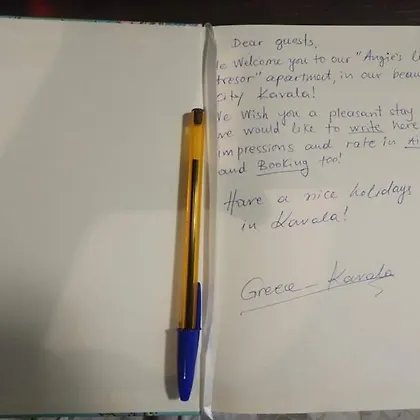 Dear guests,
Welcome you to our "Angie's
tresor" apartment, in our
city Kavala!
Wish you a pleasant stay
we would like to write here
impressions and rate in
and Booking too!
Have a nice holidays
in Kavala!
Greece - Kavala